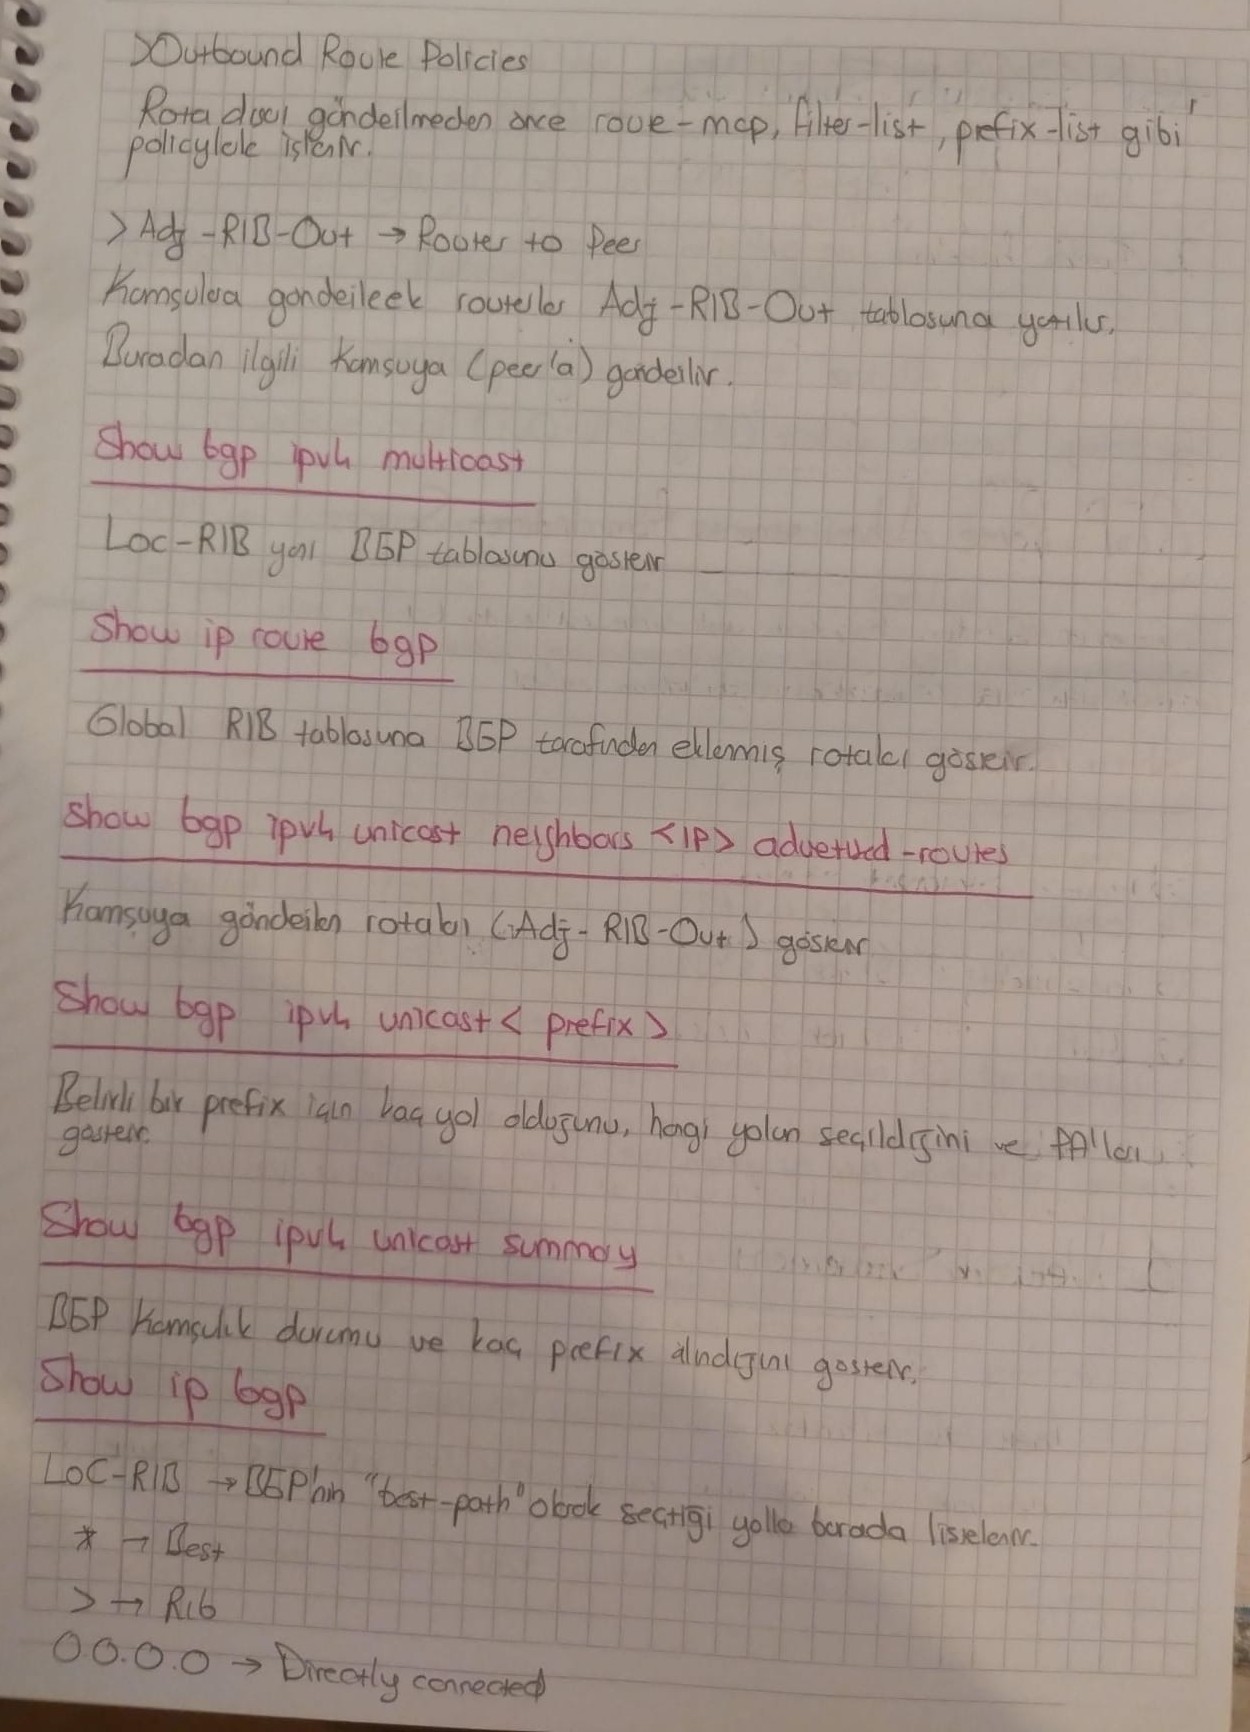 >Outbound Route Policies
Rota dışarı gönderilmeden önce route-map, filter-list, prefix-list gibi
policylerle işlenir.
> Adj-RIB-Out → Router to Peer
Komşulara gönderilecek routerlar Adj-RIB-Out tablosuna yazılır.
Buradan ilgili komşuya (peer'a) gönderilir.
Show bgp ipv4 multicast
Loc-RIB yani BGP tablosunu gösterir
Show ip route bgp
Global RIB tablosuna BGP tarafından eklenmiş rotaları gösterir.
Show bgp ipv4 unicast neighbors <IP> advertised-routes
Komşuya gönderilen rotaları (Adj-RIB-Out) gösterir
Show bgp ipv4 unicast < prefix >
Belirli bir prefix için kaç yol olduğunu, hangi yolun seçildiğini ve PA'ları
gösterir.
Show bgp ipv4 unicast summary
BGP Komşuluk durumu ve kaç prefix alındığını gösterir.
Show ip bgp
LOC-RIB → BGP'nin "best-path" olarak seçtiği yollar burada listelenir.
* → Best
> → Rib
0.0.0.0 → Directly connected